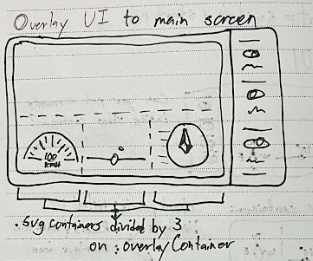 Overlay UI to main screen
100
km/h
.svg containers divided by 3
on :overlayContainer